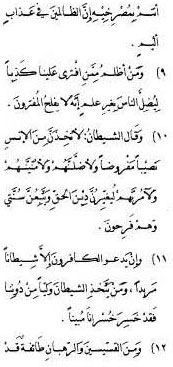 أشر بمصرخيه إن الظالمين في عذاب
أليم .
(٩) ومن أظلم ممن افترى علينا كذبا
ليضل الناس بغير علم إنه لا يفلح المفترون .
(١٠) وقال الشيطان: لأتخذن من الإنس
نصيبا مفروضا ولأضلنهم ولأمنينهم
ولآمرنهم ليغيرن دين الحق ويتبعن سنتي
وهم فرحون .
(١١) وإن يدعو الكافرون إلا شيطانا
مريدا ، ومن يتخذ الشيطان وليا من دوننا
فقد خسر خسرانا مبينا .
(١٢) ومن القسيسين والرهبان طائفة قد